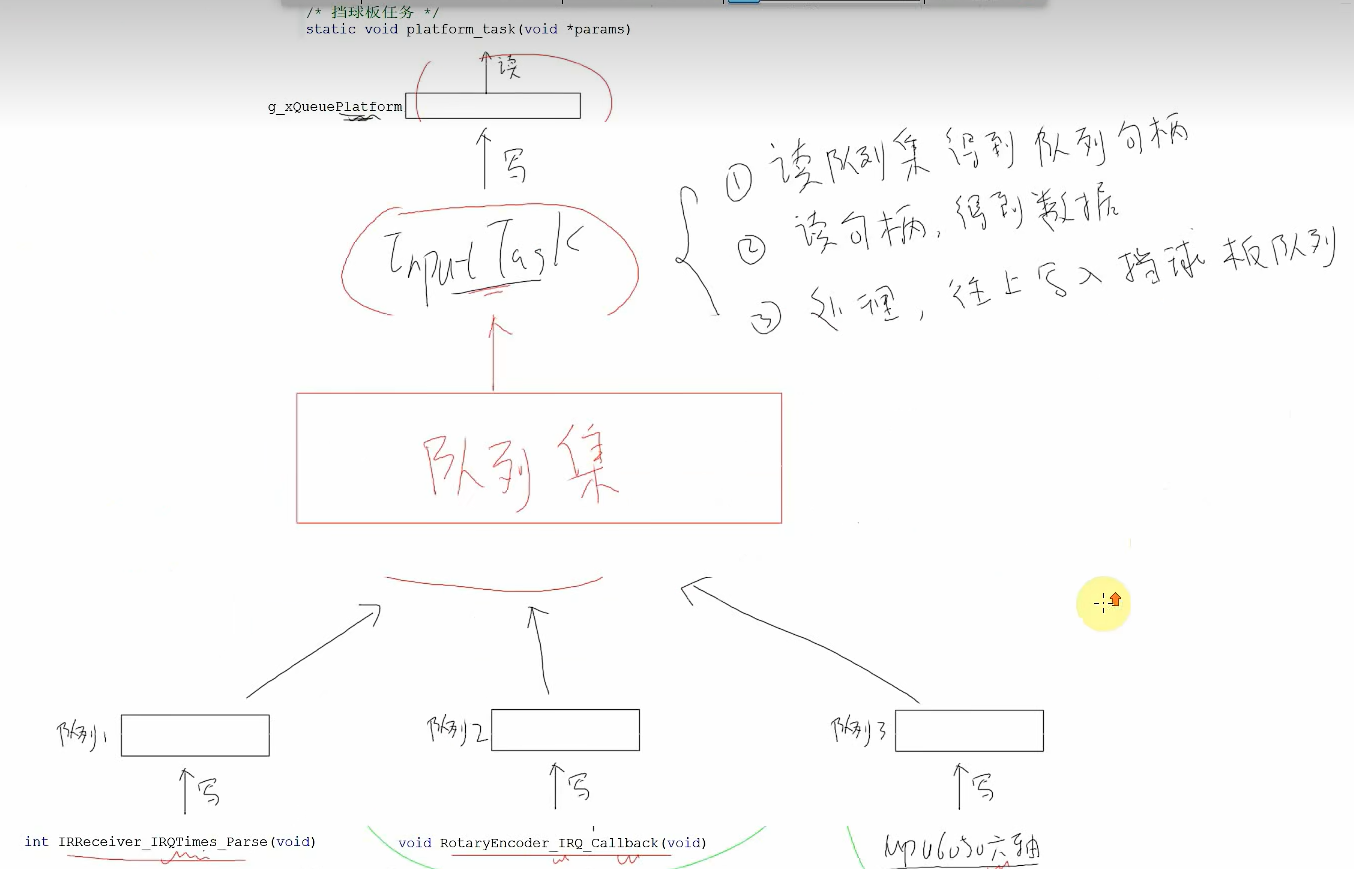 /* 挡球板任务 */
static void platform_task(void *params)
读
g_xQueuePlatform
写
Input Task
① 读队列集 得到 队列句柄
② 读句柄, 得到数据
③ 处理, 往上写入挡球板队列
队列集
队列1
队列2
队列3
写
写
写
int IRReceiver_IRQTimes_Parse(void)
void RotaryEncoder_IRQ_Callback(void)
mpu6050六轴